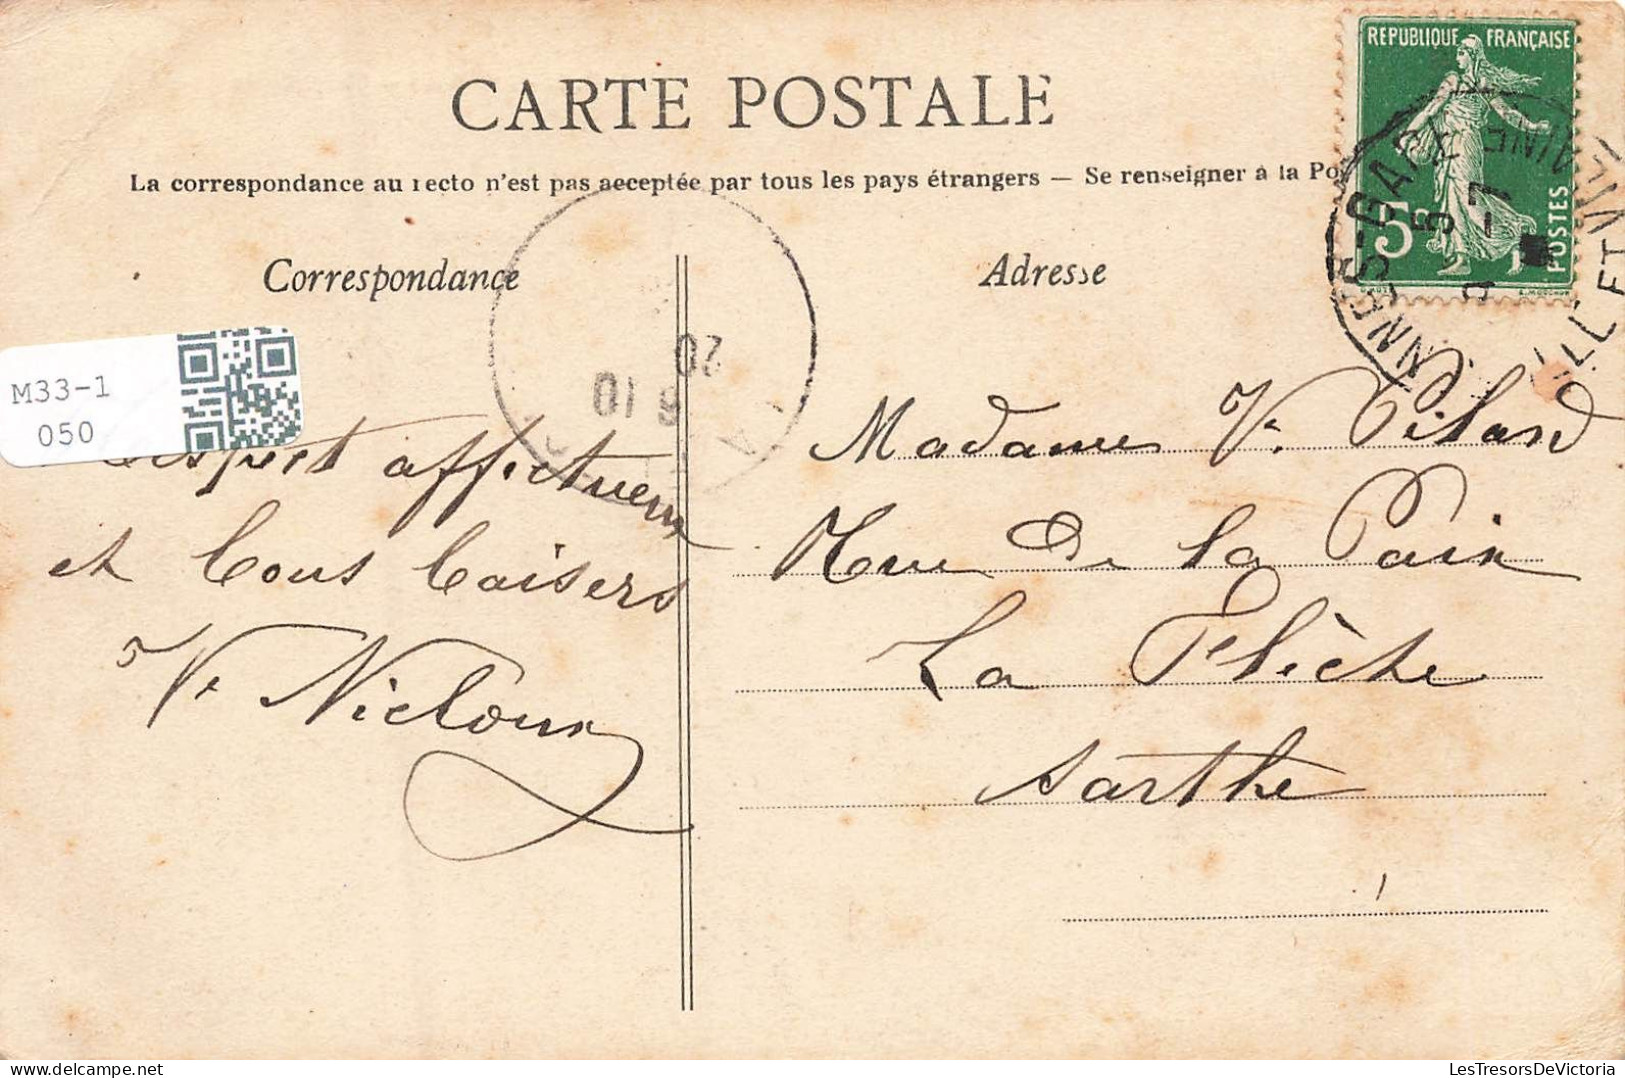 CARTE POSTALE
La correspondance au recto n'est pas acceptée par tous les pays étrangers — Se renseigner à la Po
Correspondance
Adresse
REPUBLIQUE FRANÇAISE
5c
POSTES
NNES-GARE
ILLE ET VILAINE
20
8 10
M33-1
050
Respect affectueux
et bons baisers
Ve Nicloux
Madame Ve Pilard
Rue de la Paix
La Flèche
Sarthe
LesTresorsDeVictoria